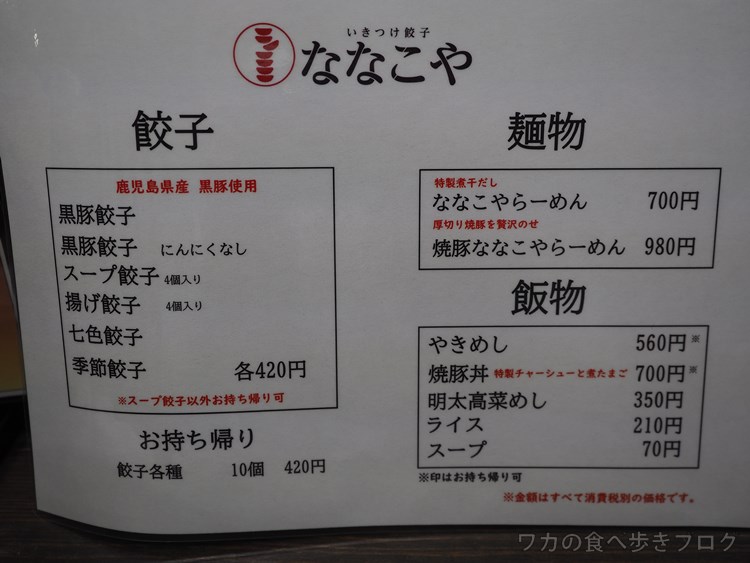 いきつけ餃子
ななこや
餃子
鹿児島県産 黒豚使用
黒豚餃子
黒豚餃子 にんにくなし
スープ餃子 4個入り
揚げ餃子 4個入り
七色餃子
季節餃子 各420円
※スープ餃子以外お持ち帰り可
お持ち帰り
餃子各種 10個 420円
麺物
特製煮干だし
ななこやらーめん 700円
厚切り焼豚を贅沢のせ
焼豚ななこやらーめん 980円
飯物
やきめし 560円※
焼豚丼 特製チャーシューと煮たまご 700円※
明太高菜めし 350円
ライス 210円
スープ 70円
※印はお持ち帰り可
※金額はすべて消費税別の価格です。
ワカの食べ歩きブログ